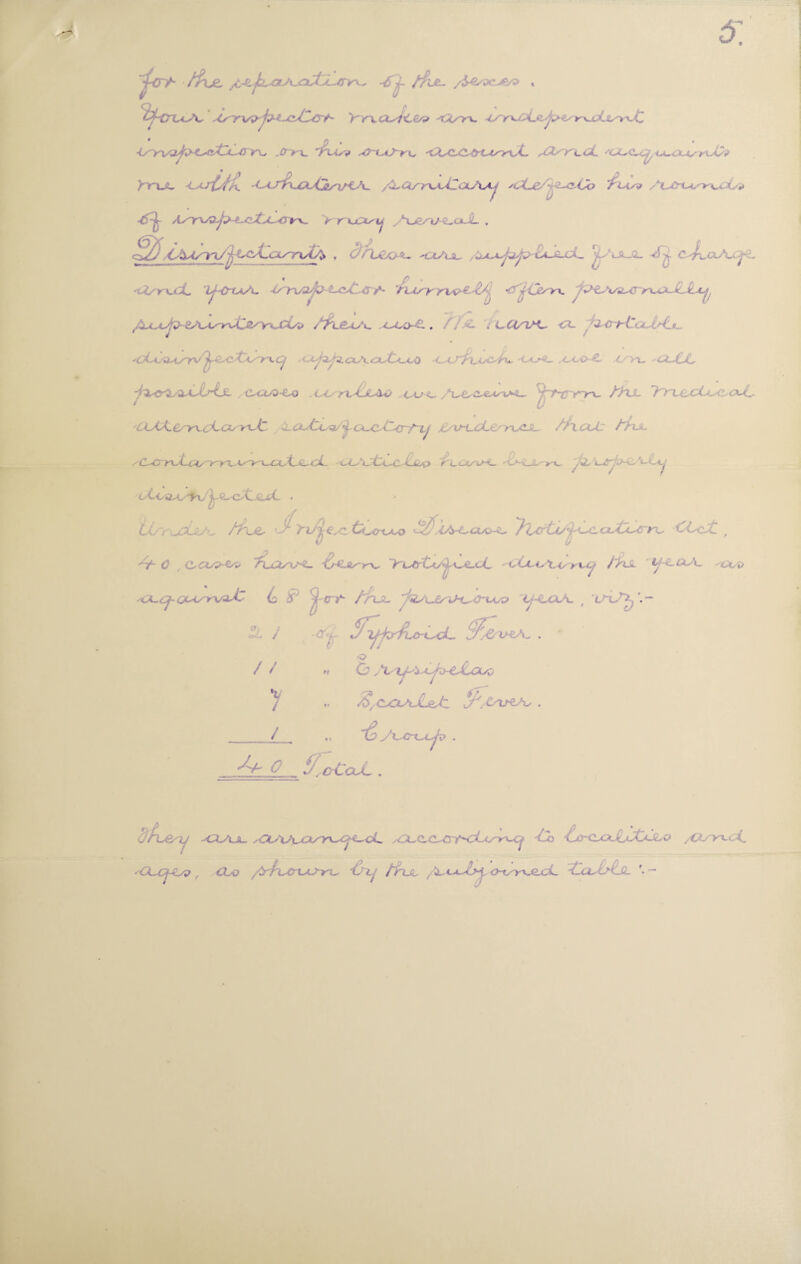 5.
for the separation of the sexes.
Your Inspector makes an independent
inspection on his own account, and acquaints
me with whatever sanitary defects his rounds
of inspection may reveal.
Disinfectants. These are supplied free of charge
and your inspector himself often personally
superintends their use. We have a portable
disinfecting apparatus which we use in all
possible cases unless we receive from the medical
attendant satisfactory evidence that the
contaminated articles have been properly
disinfected.
Under the Infectious Disease Notification Act,
40 cases have been notified during the year as
against 68 for the previous year, viz:-
21 of Typhoid Fever.
11 " Erysipelas
7 " Scarlet Fever.
1 " Croup.
40 Total.
They are arranged according to localities and
ages, as shown by the subjoined table:-